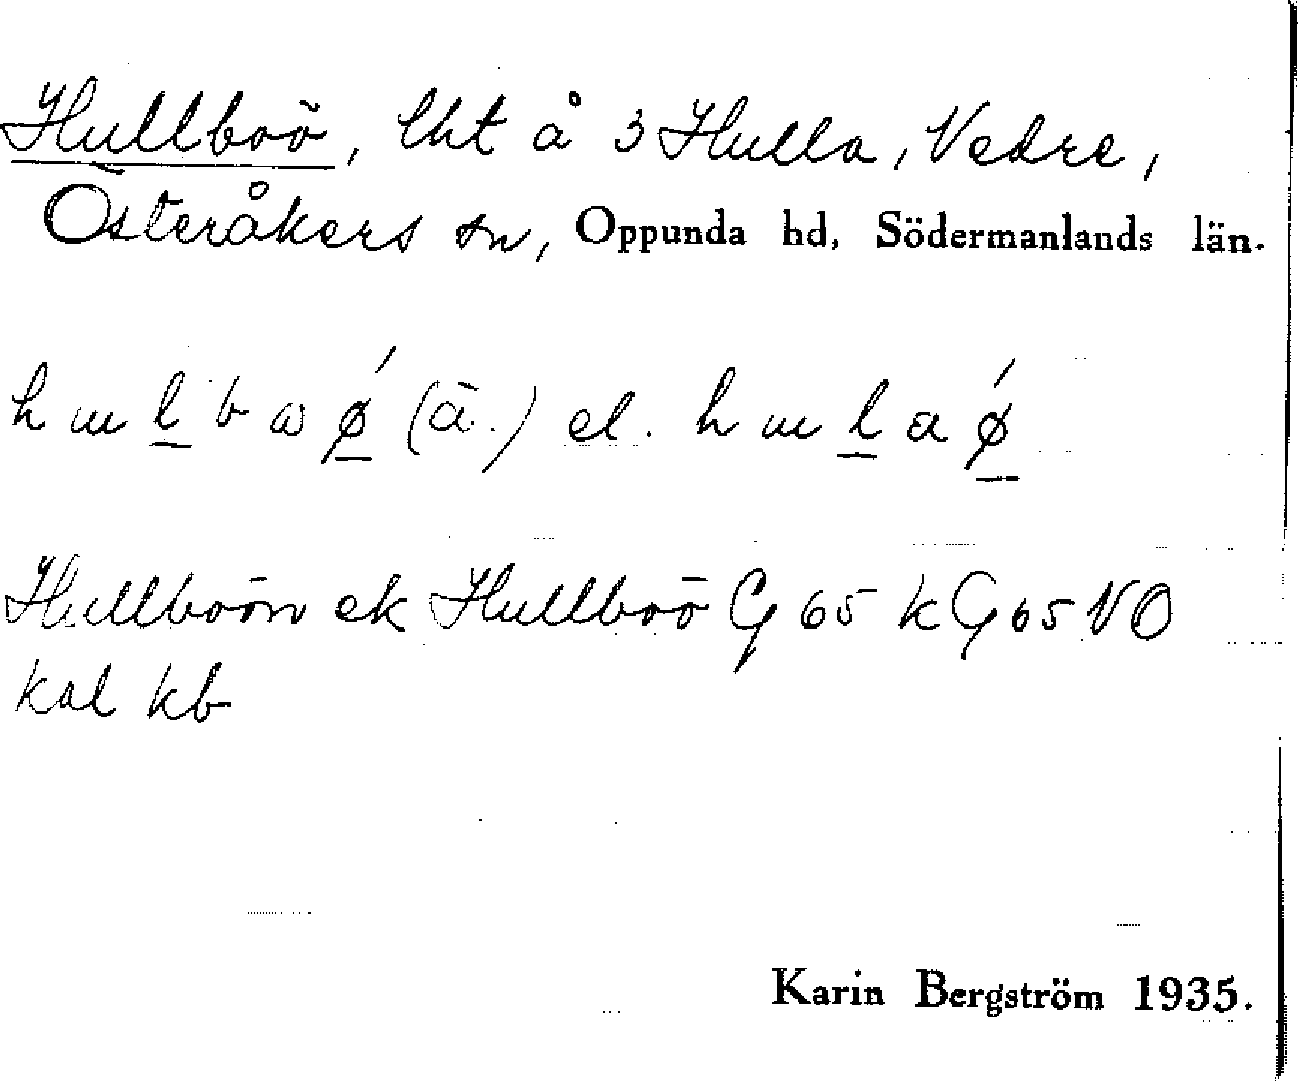 Hullboö, lht å 3 Hulla, Vedre,
Österåkers sn, Oppunda hd, Södermanlands län.
h u l b ω ǿ (ä.) el. h u l a ǿ
Hullboön ek Hullboö G 65 k G 65 NO
kal kb
Karin Bergström 1935.